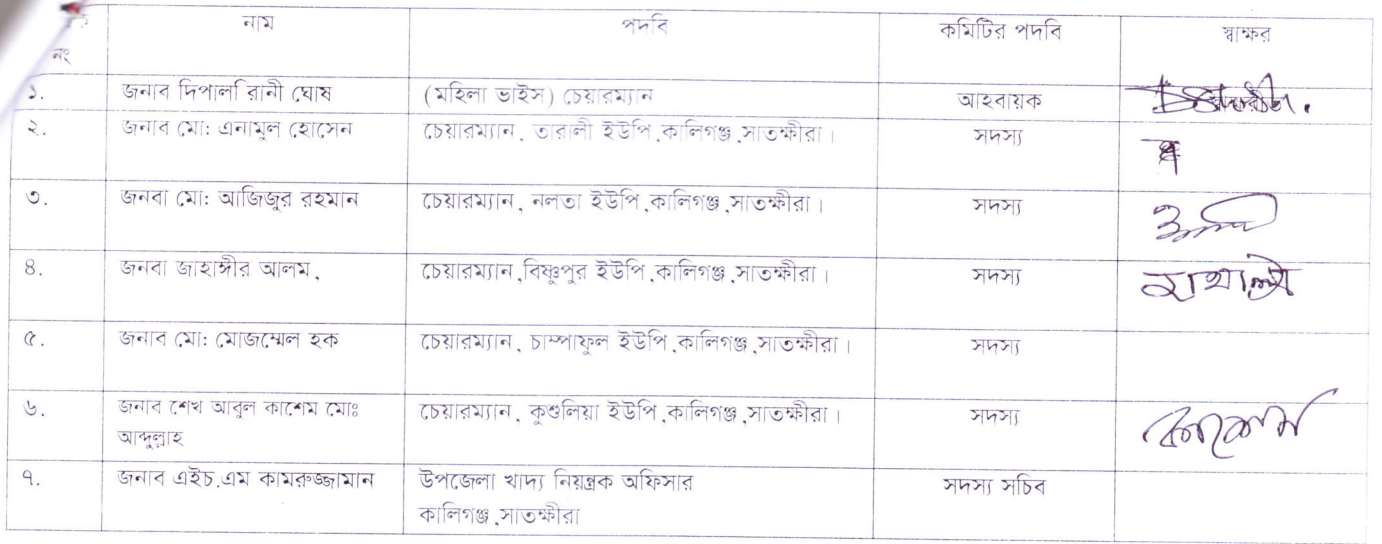 নাম পদবি কমিটির পদবি স্বাক্ষর
নং
১. জনাব দিপালী রানী ঘোষ (মহিলা ভাইস) চেয়ারম্যান আহবায়ক
২. জনাব মো: এনামুল হোসেন চেয়ারম্যান, তারালী ইউপি,কালিগঞ্জ,সাতক্ষীরা। সদস্য
৩. জনবা মো: আজিজুর রহমান চেয়ারম্যান, নলতা ইউপি,কালিগঞ্জ,সাতক্ষীরা। সদস্য
৪. জনবা জাহাঙ্গীর আলম, চেয়ারম্যান,বিষ্ণুপুর ইউপি,কালিগঞ্জ,সাতক্ষীরা। সদস্য
৫. জনাব মো: মোজম্মেল হক চেয়ারম্যান, চাম্পাফুল ইউপি,কালিগঞ্জ,সাতক্ষীরা। সদস্য
৬. জনাব শেখ আবুল কাশেম মোঃ চেয়ারম্যান, কুশুলিয়া ইউপি,কালিগঞ্জ,সাতক্ষীরা। সদস্য
আব্দুল্লাহ
৭. জনাব এইচ.এম কামরুজ্জামান উপজেলা খাদ্য নিয়ন্ত্রক অফিসার সদস্য সচিব
কালিগঞ্জ,সাতক্ষীরা